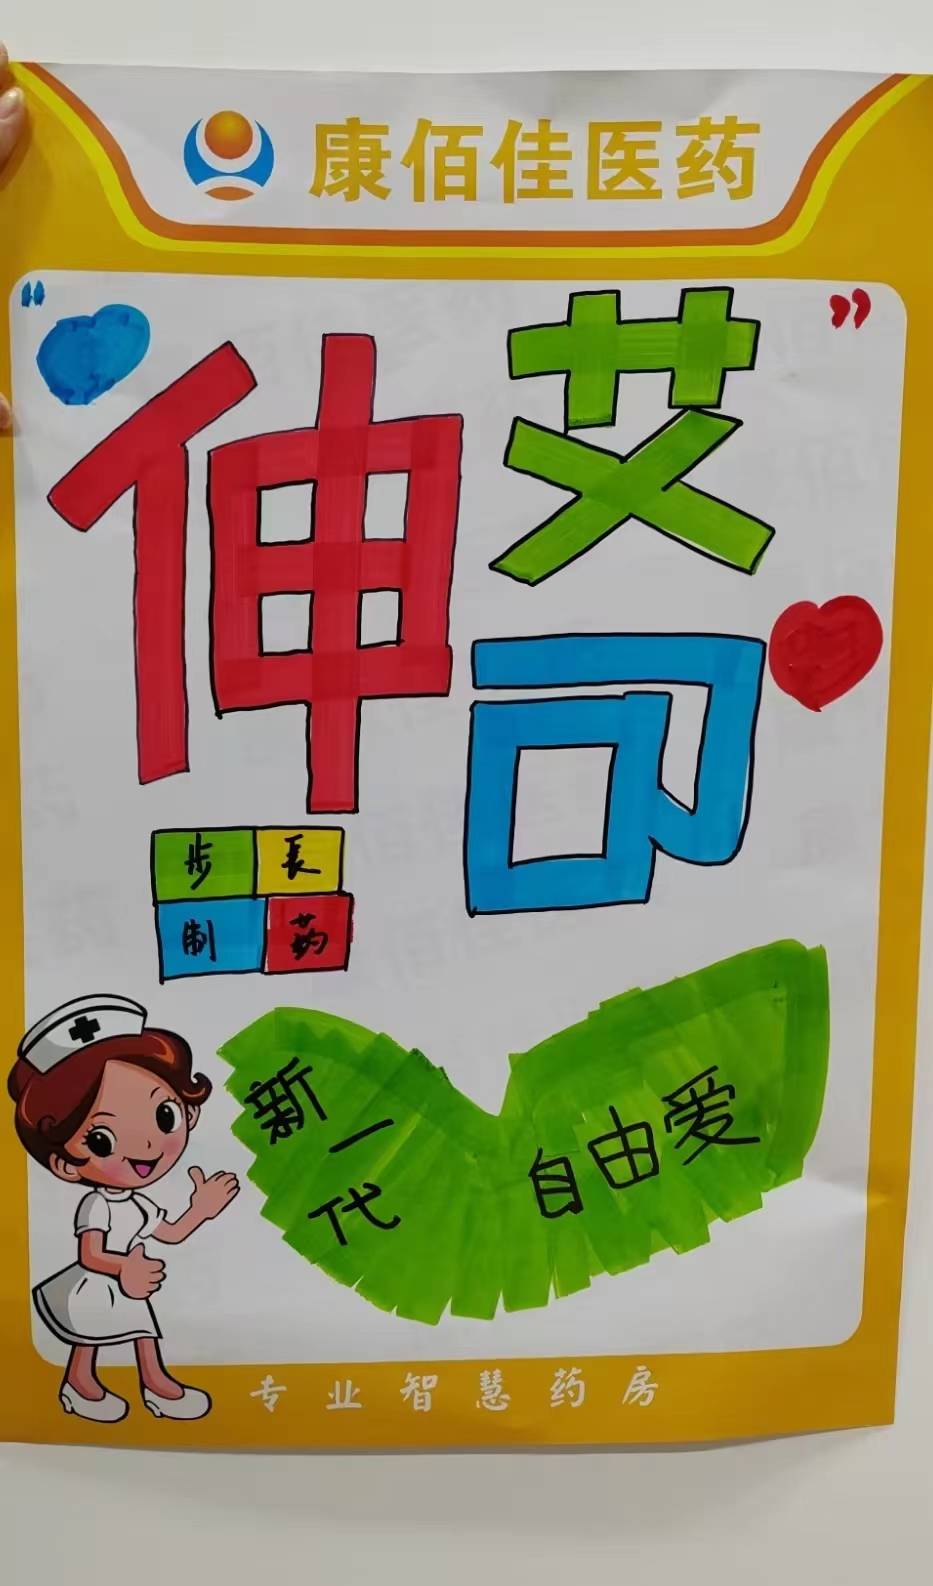 康佰佳医药
“
”
伸
艾
司
步長
制药
新一代
自由爱
专业智慧药房